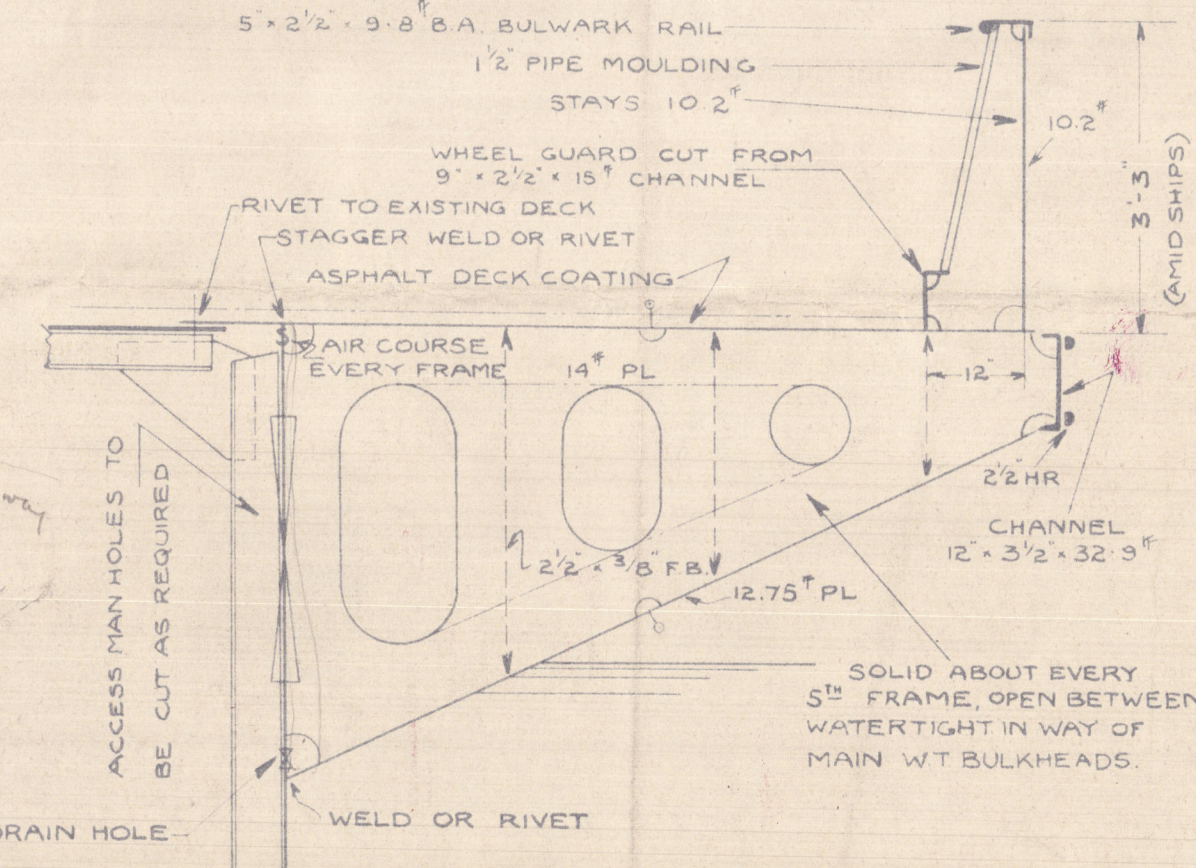 5" × 2½" × 9·8# B.A. BULWARK RAIL
1½" PIPE MOULDING
STAYS 10.2#
10.2#
WHEEL GUARD CUT FROM
9" × 2½" × 15# CHANNEL
3'-3"
(AMID SHIPS)
RIVET TO EXISTING DECK
STAGGER WELD OR RIVET
ASPHALT DECK COATING
AIR COURSE
EVERY FRAME
14# PL
12"
2½" HR
CHANNEL
12" × 3½" × 32·9#
ACCESS MAN HOLES TO
BE CUT AS REQUIRED
2½" × ⅜" F.B.
12.75# PL
SOLID ABOUT EVERY
5TH FRAME, OPEN BETWEEN
WATERTIGHT IN WAY OF
MAIN W.T BULKHEADS.
WELD OR RIVET
DRAIN HOLE